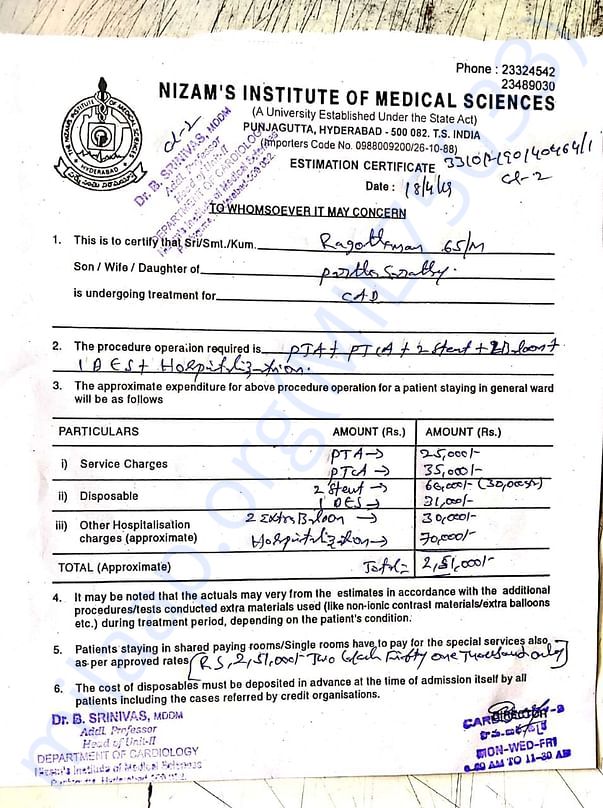 Phone : 23324542
23489030
NIZAM'S INSTITUTE OF MEDICAL SCIENCES
(A University Established Under the State Act)
PUNJAGUTTA, HYDERABAD - 500 082. T.S. INDIA
(Importers Code No. 0988009200/26-10-88)
HYDERABAD
Dr. B. SRINIVAS, MDDM
Addl. Professor
Head of Unit-II
DEPARTMENT OF CARDIOLOGY
Nizam's Institute of Medical Sciences
ESTIMATION CERTIFICATE
Date : 18/4/19
TO WHOMSOEVER IT MAY CONCERN
1. This is to certify that Sri/Smt./Kum. Ragothaman 65/M
Son / Wife / Daughter of Partha Sarathy.
is undergoing treatment for CAD
2. The procedure operation required is PTA + PTCA + 2 Stent + 2 Baloon +
1 DES + Hospitalization.
3. The approximate expenditure for above procedure operation for a patient staying in general ward
will be as follows
PARTICULARS AMOUNT (Rs.) AMOUNT (Rs.)
i) Service Charges PTA → 25,000/-
PTCA → 35,000/-
ii) Disposable 2 Stent → 60,000/-
1 DES → 31,000/-
iii) Other Hospitalisation 2 Extra Baloon → 30,000/-
charges (approximate) Hospitalization → 70,000/-
TOTAL (Approximate) Total = 2,51,000/-
4. It may be noted that the actuals may very from the estimates in accordance with the additional
procedures/tests conducted extra materials used (like non-ionic contrast materials/extra balloons
etc.) during treatment period, depending on the patient's condition.
5. Patients staying in shared paying rooms/Single rooms have to pay for the special services also
as per approved rates (RS, 2,51,000/- Two Lakh Fifty one Thousand only)
6. The cost of disposables must be deposited in advance at the time of admission itself by all
patients including the cases referred by credit organisations.
Dr. B. SRINIVAS, MDDM
Addl. Professor
Head of Unit-II
DEPARTMENT OF CARDIOLOGY
Nizam's Institute of Medical Sciences
DIRECTOR
MON-WED-FRI
TO 11-30 AM
milaap.org